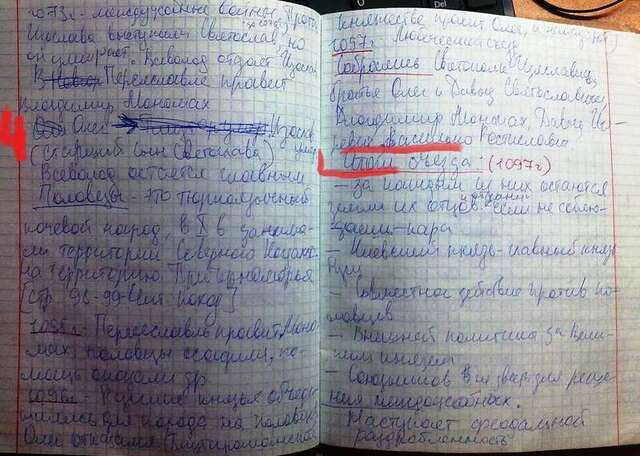 1073г.- междуусобная война. Проти
Изяслава выступили Святослав, но
он умирает. Всеволод отдает Изясл
В Переяславле правит
Владимир Мономах
4 Олег Изяслав
(старший сын Святослава)
Всеволод остается главным
Половцы - это тюркоязычный
кочевой народ, в X в занима
ли территорий Северного Казахс
на территорию Причерноморья
[стр 98-99
Переяславль правит Моно
мах, половцы осадили, по
мощь оказали др
Русские князья объеди
нились для похода на половцев
Олег отказался
княжестве правит Олег,
1097г. Любеческий съезд
Собрались Святополк Изяславич,
братья Олег и Давыд Святославичи,
Владимир Мономах, Давыд Иго
ревич, Василько Ростиславич
Итоги съезда: (1097г)
- За каждым из них остаются
земли их отцов. если не соблю
кара
- Киевский князь - главный князь
Руси
- Совместное действие против по
ловцев
- Внешней политика за Вели
ким князем
- Союзников для реше
ния междоусобных.
Наступает феодальной
раздробленность